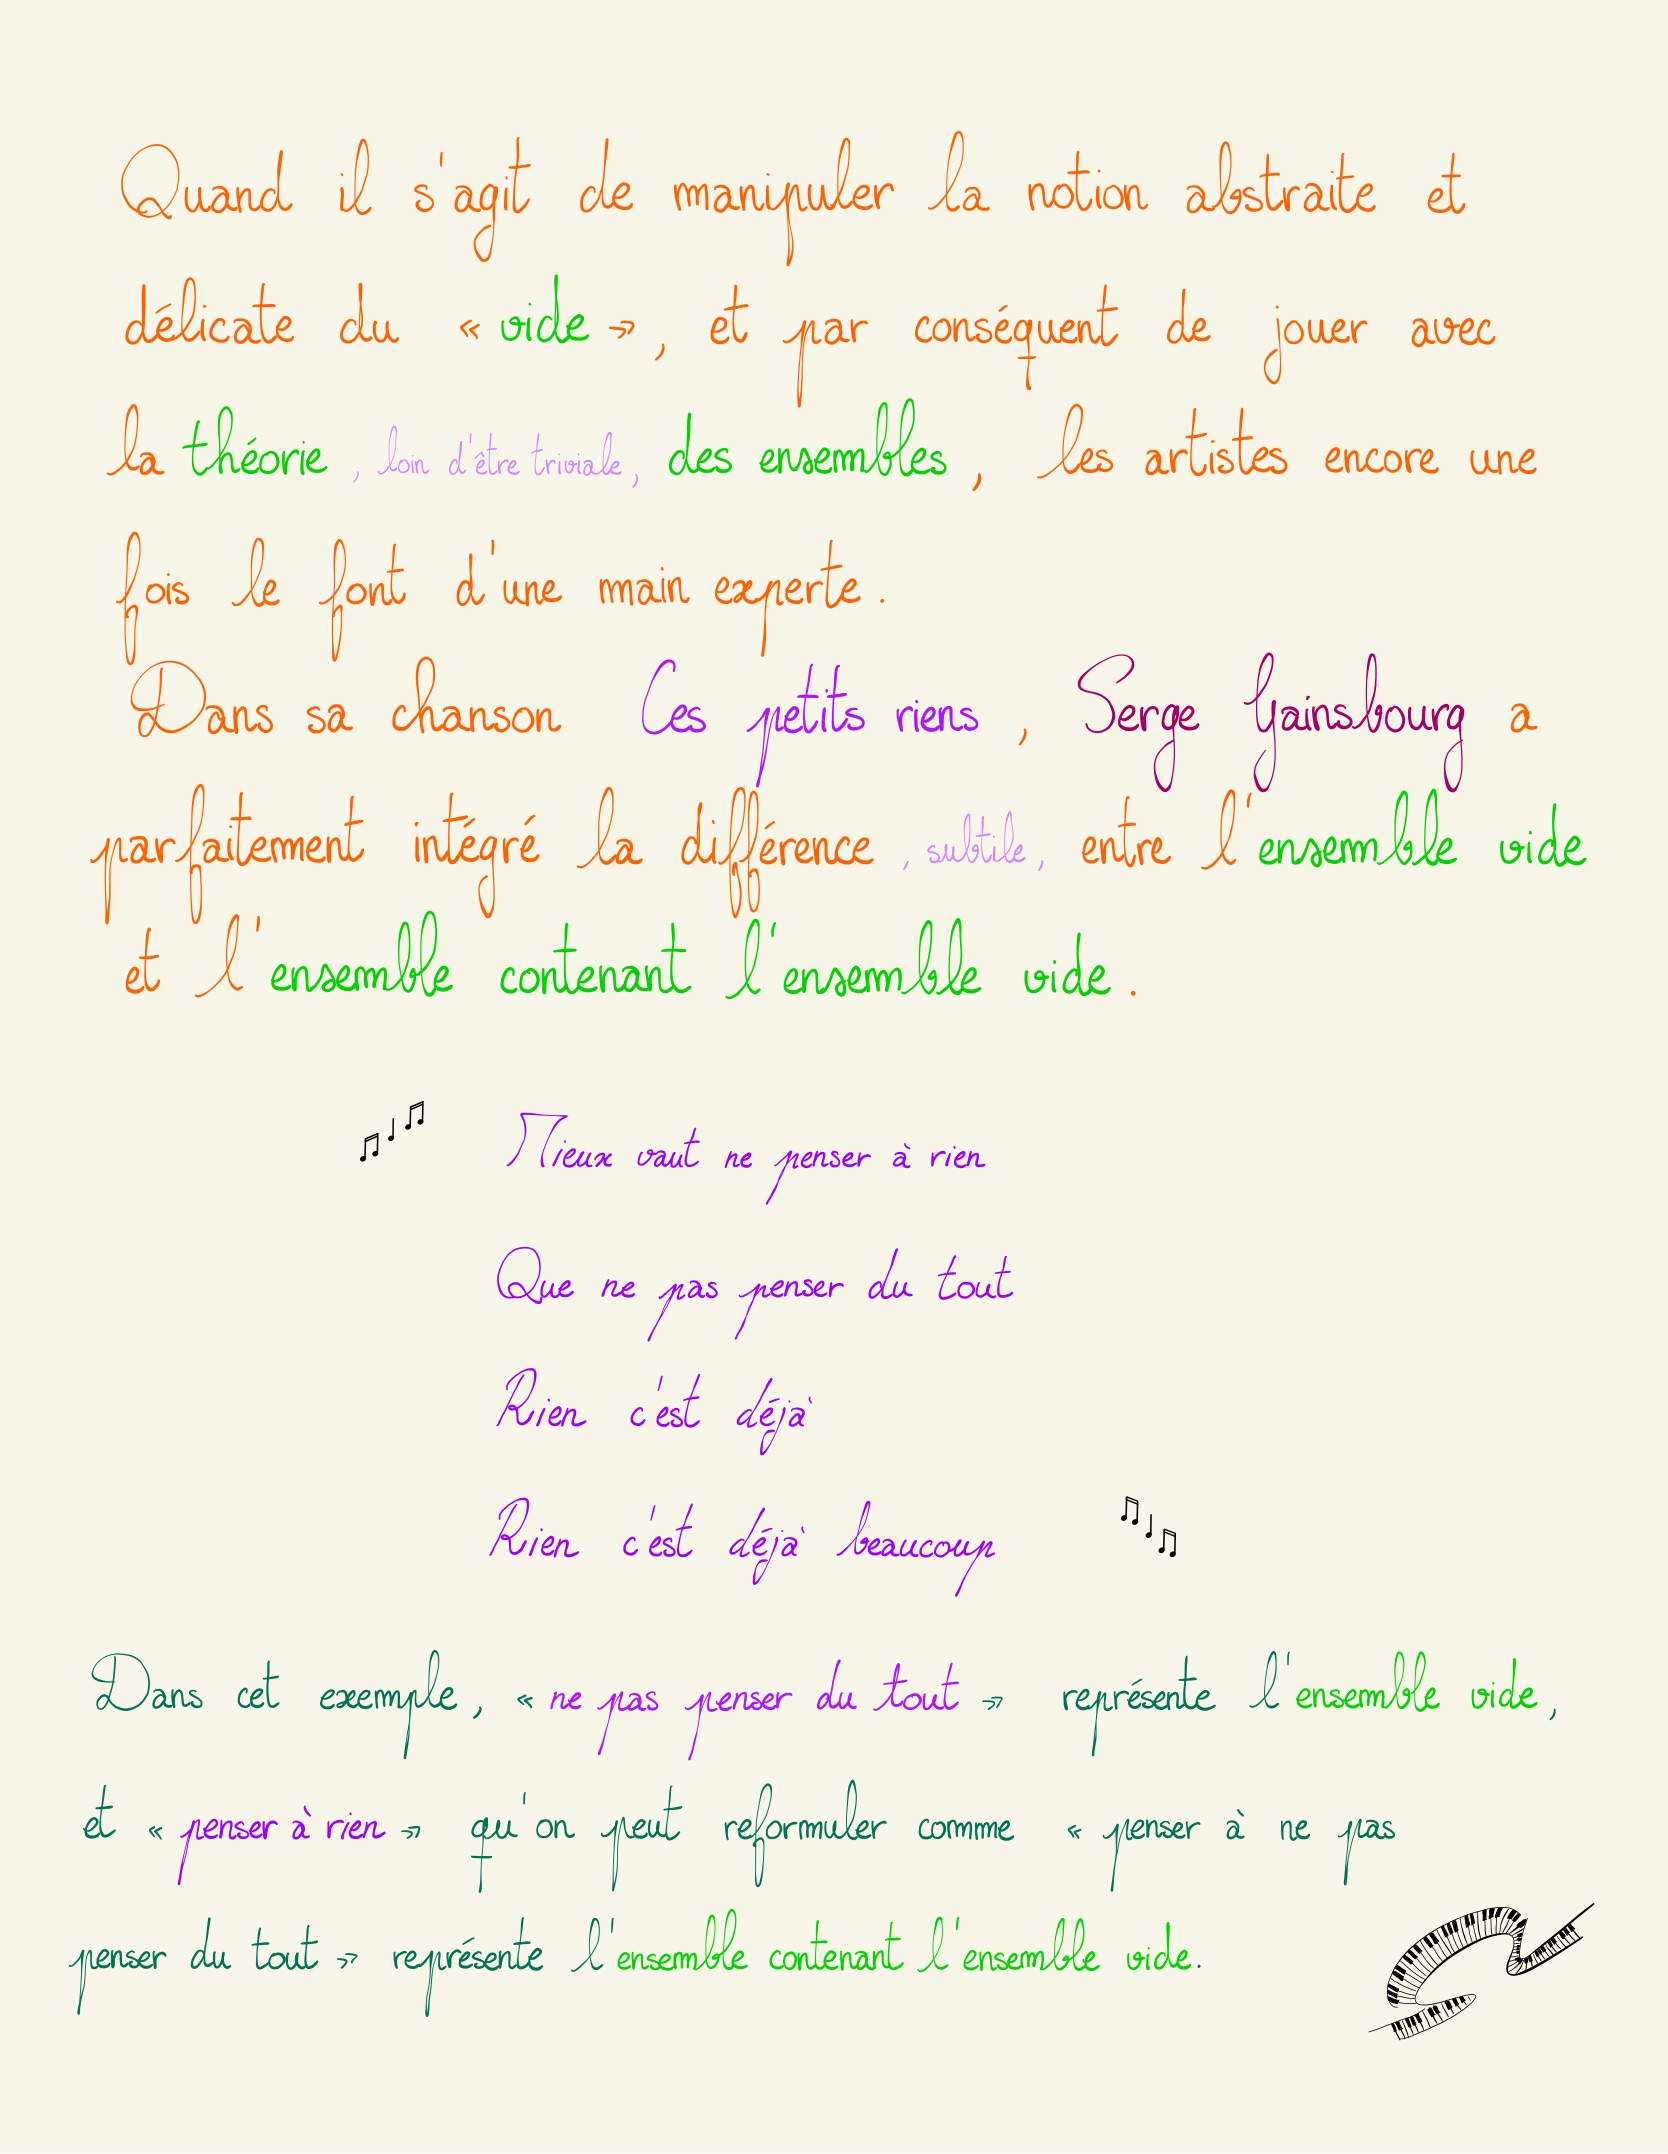 Quand il s'agit de manipuler la notion abstraite et
délicate du « vide », et par conséquent de jouer avec
la théorie , loin d'être triviale, des ensembles , les artistes encore une
fois le font d'une main experte .
Dans sa chanson Ces petits riens , Serge Gainsbourg a
parfaitement intégré la différence , subtile , entre l'ensemble vide
et l'ensemble contenant l'ensemble vide .
Mieux vaut ne penser à rien
Que ne pas penser du tout
Rien c'est déjà
Rien c'est déjà beaucoup
Dans cet exemple, « ne pas penser du tout » représente l'ensemble vide,
et « penser à rien » qu'on peut reformuler comme « penser à ne pas
penser du tout » représente l'ensemble contenant l'ensemble vide.